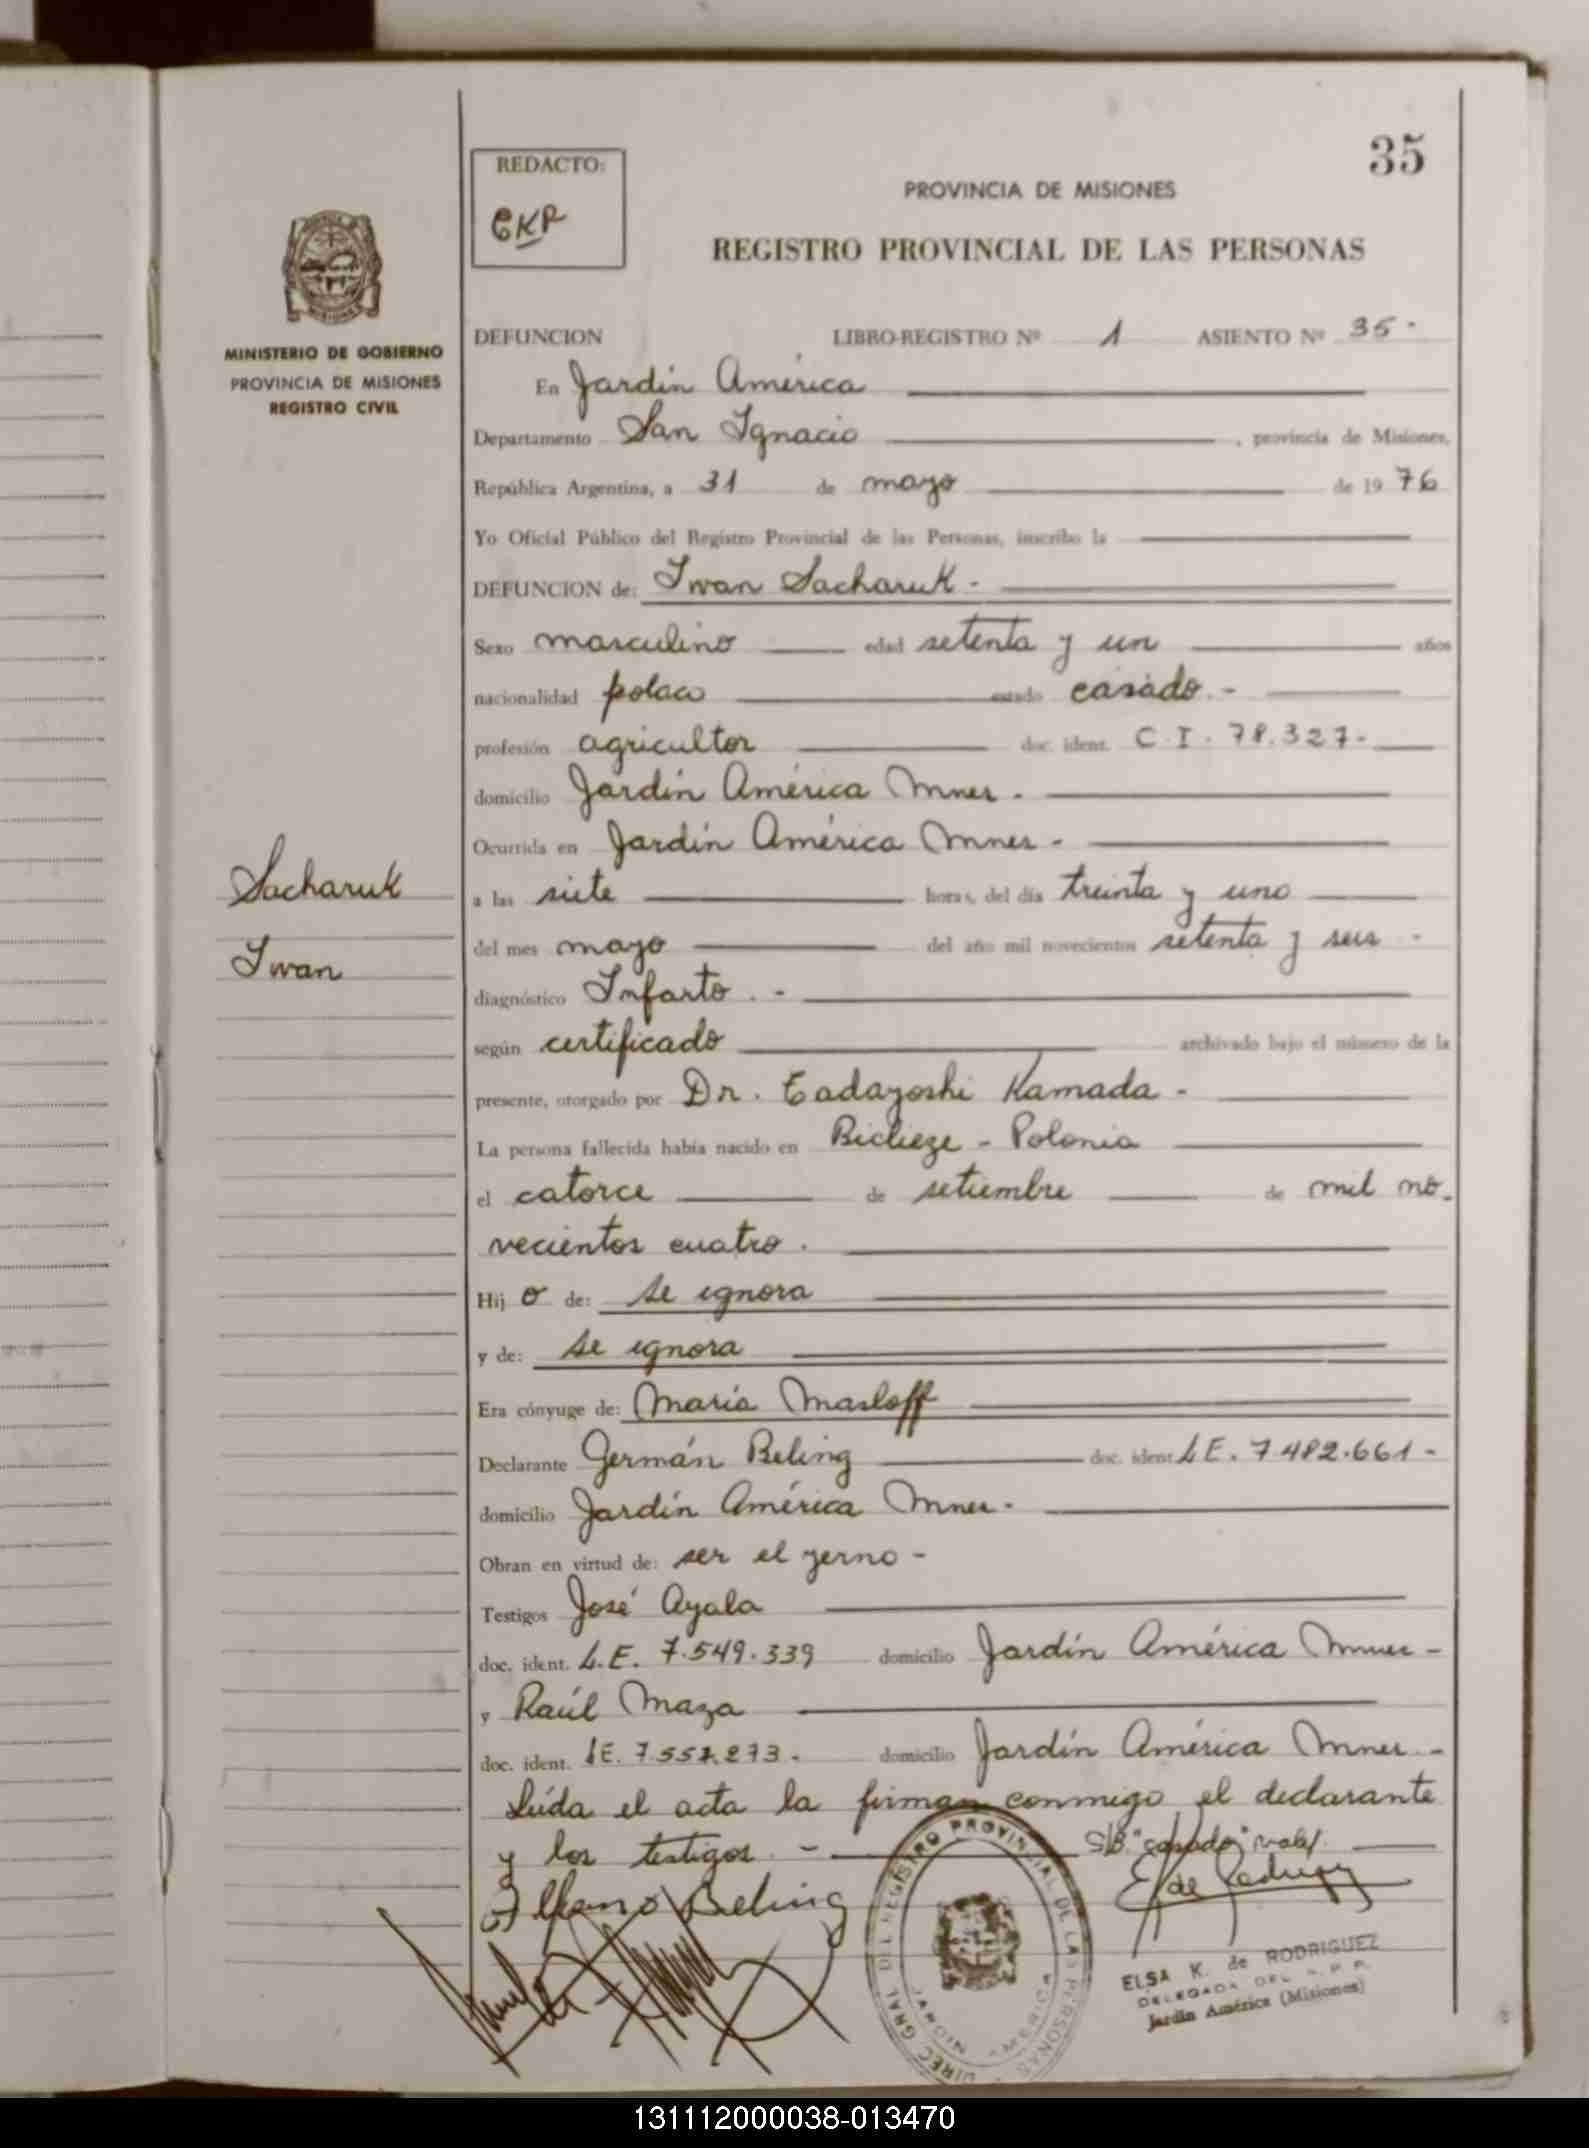 35
REDACTO:
EKR
PROVINCIA DE MISIONES
REGISTRO PROVINCIAL DE LAS PERSONAS
MINISTERIO DE GOBIERNO
PROVINCIA DE MISIONES
REGISTRO CIVIL
DEFUNCION LIBRO-REGISTRO Nº 1 ASIENTO Nº 35-
En Jardín América
Departamento San Ignacio, provincia de Misiones,
República Argentina, a 31 de mayo de 1976
Yo Oficial Público del Registro Provincial de las Personas, inscribo la
DEFUNCION de: Iwan Sacharuk-
Sexo masculino edad setenta y un años
nacionalidad polaco estado casado.-
profesión agricultor doc. ident. C.I. 78.327-
domicilio Jardín América Mnes.
Ocurrida en Jardín América Mnes-
Sacharuk
Iwan
a las siete horas, del día treinta y uno
del mes mayo del año mil novecientos setenta y seis -
diagnóstico Infarto.-
según certificado archivado bajo el número de la
presente, otorgado por Dr. Tadayoshi Kamada-
La persona fallecida había nacido en Biclieze - Polonia
el catorce de setiembre de mil no-
vecientos cuatro.
Hijo de: se ignora
y de: se ignora
Era cónyuge de: María Masloff
Declarante Germán Beling doc. ident. L.E. 7.482.661-
domicilio Jardín América Mnes.
Obran en virtud de: ser el yerno-
Testigos José Ayala
doc. ident. L.E. 7.549.339 domicilio Jardín América Mnes-
y Raúl Maza
doc. ident. L.E. 7.557.273. domicilio Jardín América Mnes-
Leída el acta la firman conmigo el declarante
y los testigos.- S/B "casado" vale/.
Beling
DIREC GRAL DEL REGISTRO PROVINCIAL DE LAS PERSONAS
JARDIN AMERICA
ELSA K. de RODRIGUEZ
DELEGADA DEL R. P. P.
Jardín América (Misiones)
131112000038-013470